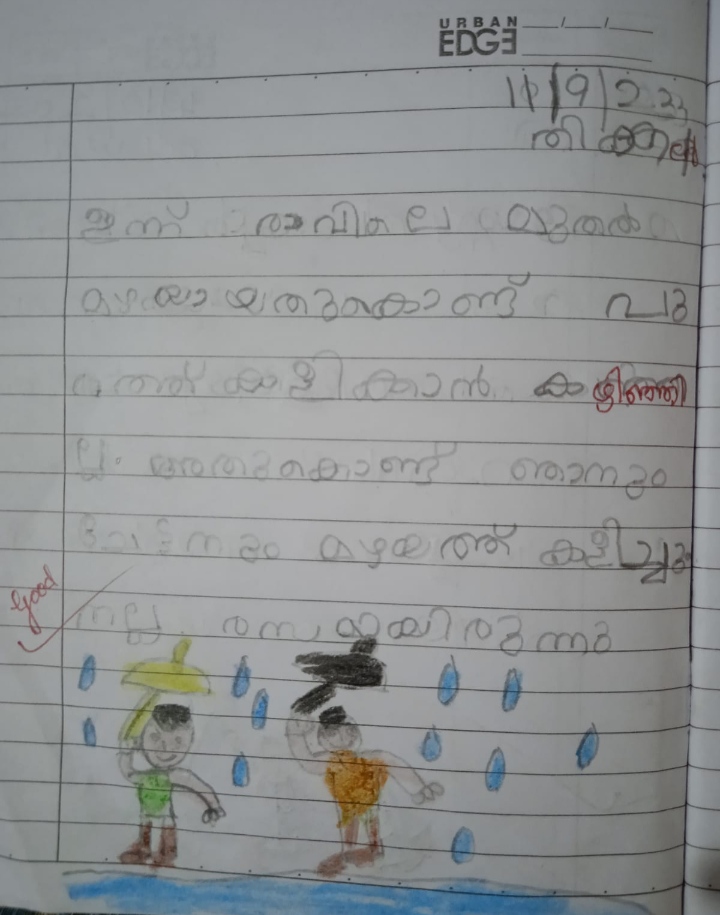 URBAN
EDGE
11/9/2023
തിങ്കൾ
ഇന്ന് രാവിലെ മുതൽ
മഴയായതുകൊണ്ട് പു
റത്ത് കളിക്കാൻ കഴിഞ്ഞി
ല്ല. അതുകൊണ്ട് ഞാനും
മഴയത്ത് കളിച്ചു
നല്ല രസമായിരുന്നു
good